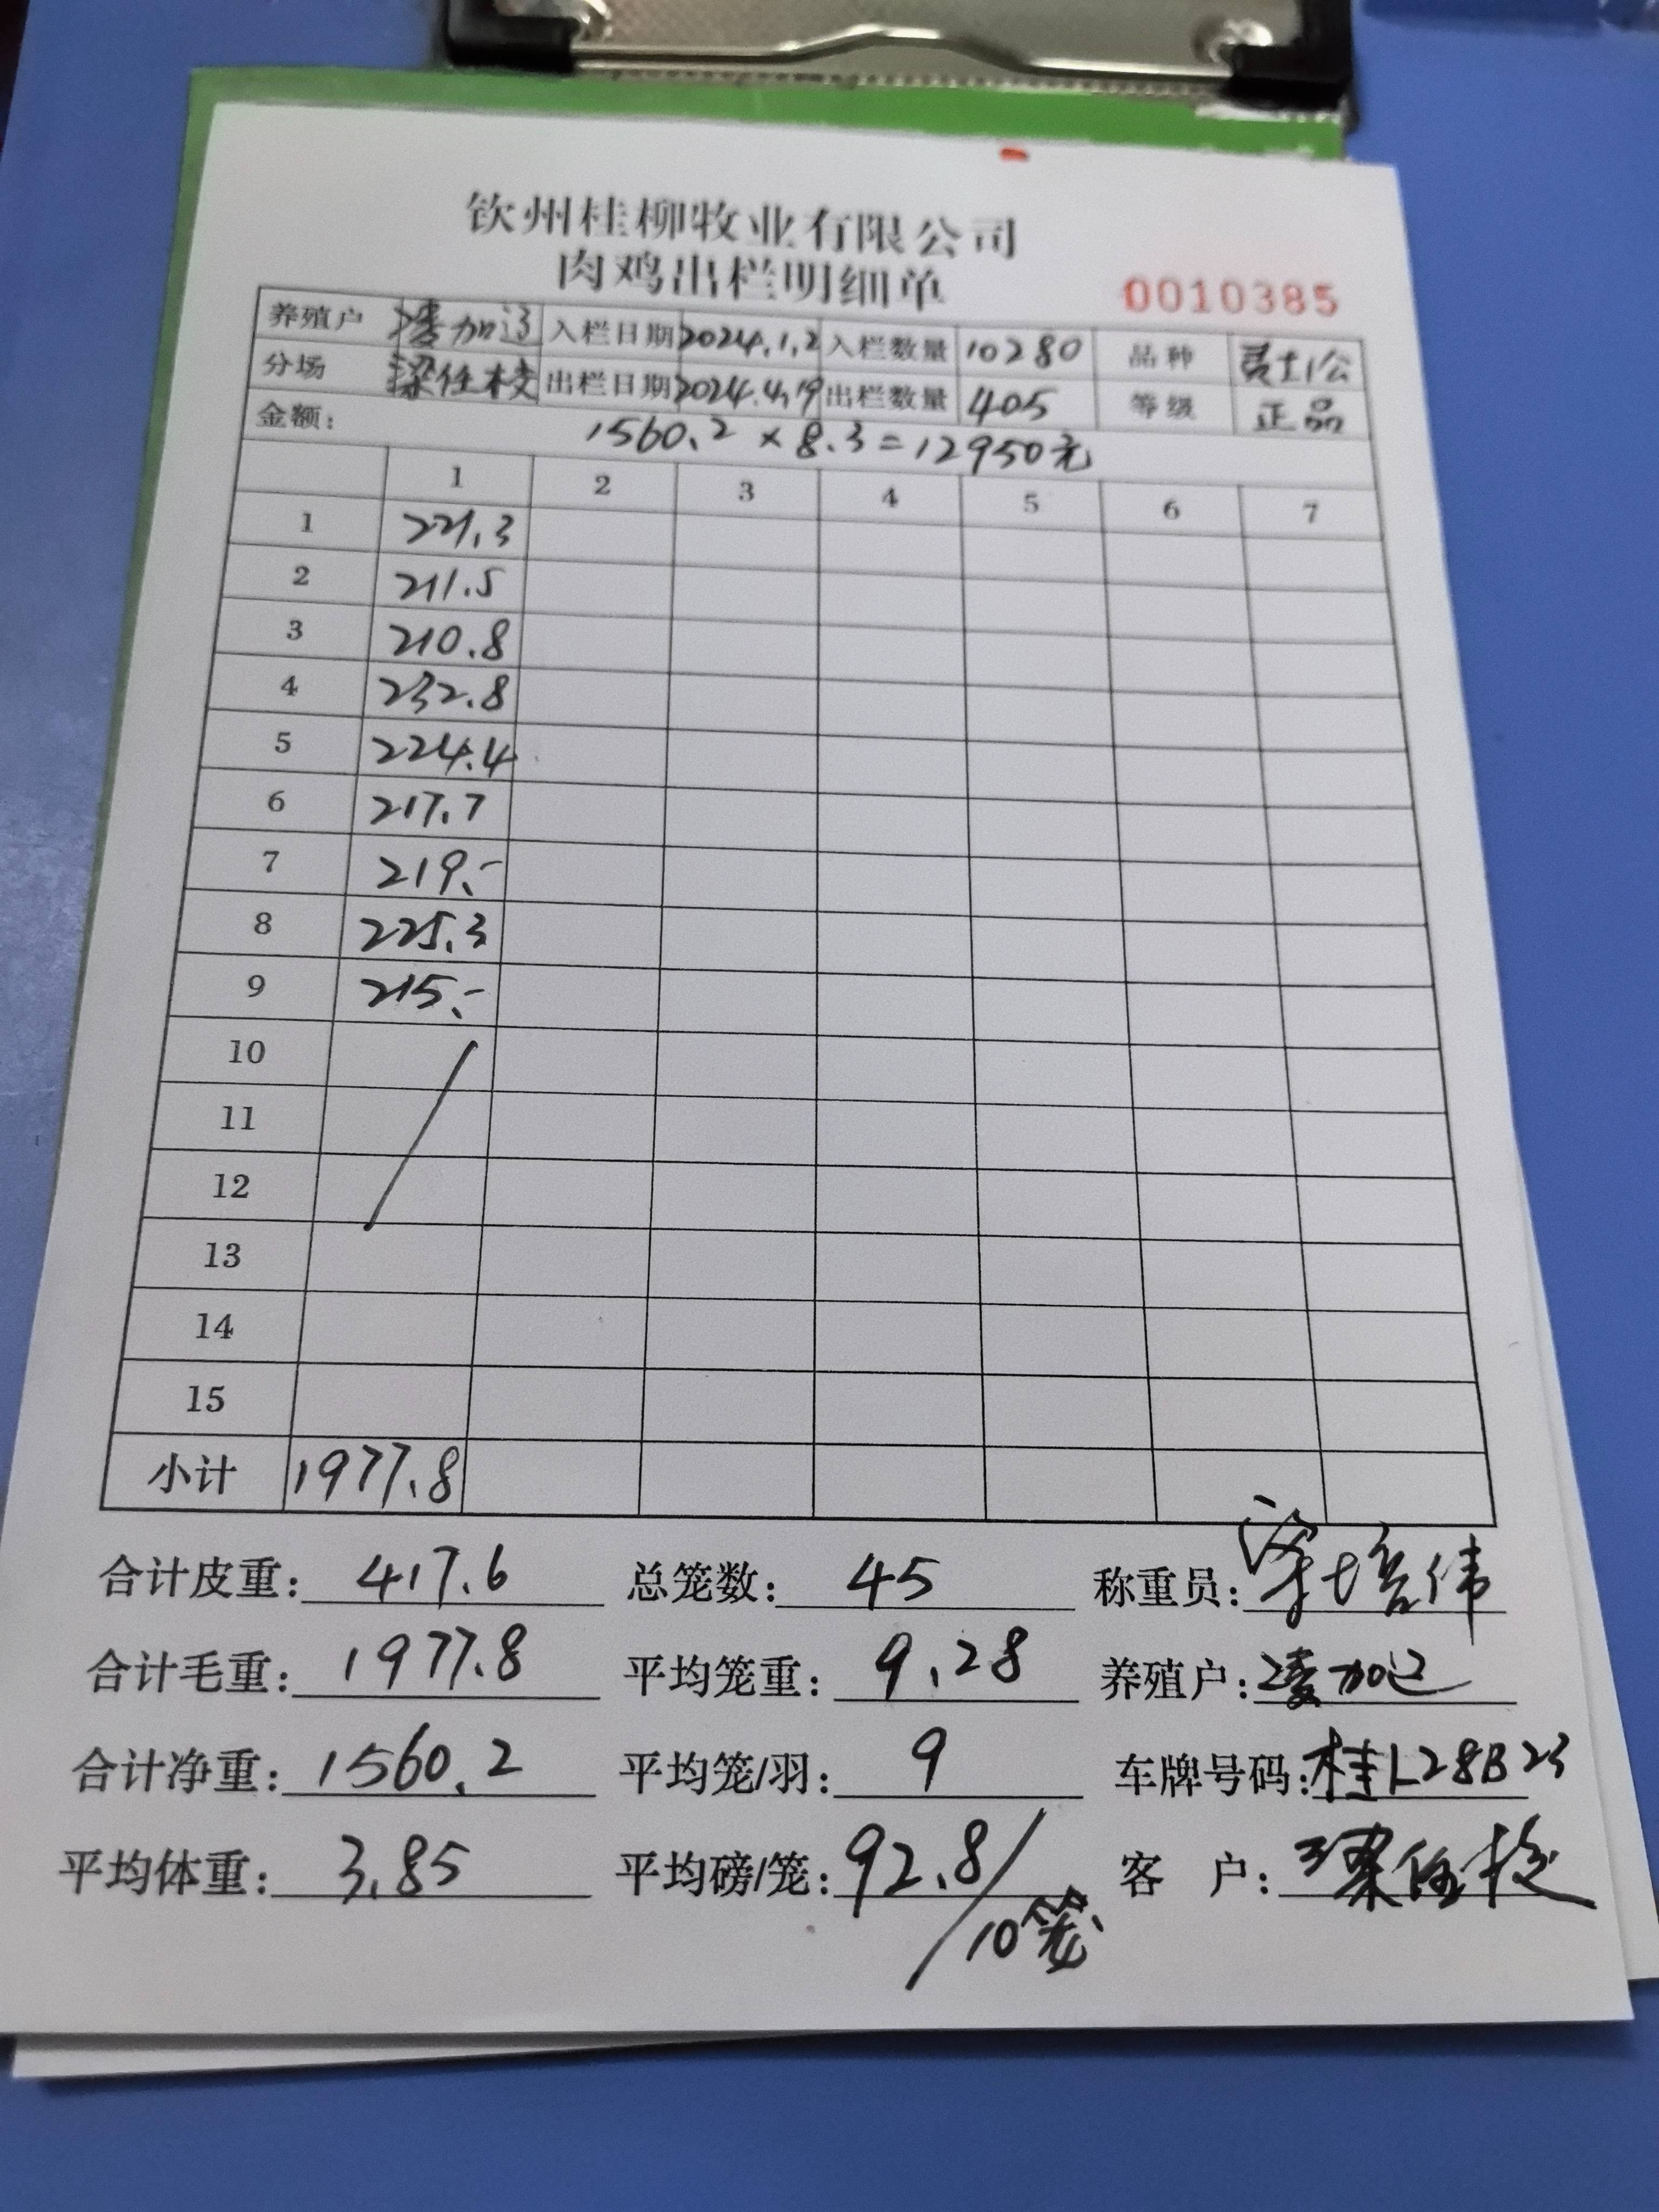 钦州桂柳牧业有限公司
肉鸡出栏明细单
0010385
养殖户 凌加 入栏日期 2024.1.2 入栏数量 10280 品种
分场 梁任 出栏日期 2024.4.19 出栏数量 405 等级 正品
金额: 1560.2 × 8.3 = 12950元
1 2 3 4 5 6 7
1 221.3
2 211.5
3 210.8
4 232.8
5 224.4
6 217.7
7 219.-
8 225.3
9 215.-
10
11
12
13
14
15
小计 1977.8
合计皮重: 417.6 总笼数: 45 称重员: 培伟
合计毛重: 1977.8 平均笼重: 9.28 养殖户: 凌加
合计净重: 1560.2 平均笼/羽: 9 车牌号码: 桂L28B23
平均体重: 3.85 平均磅/笼: 92.8/10笼 客 户: 梁任